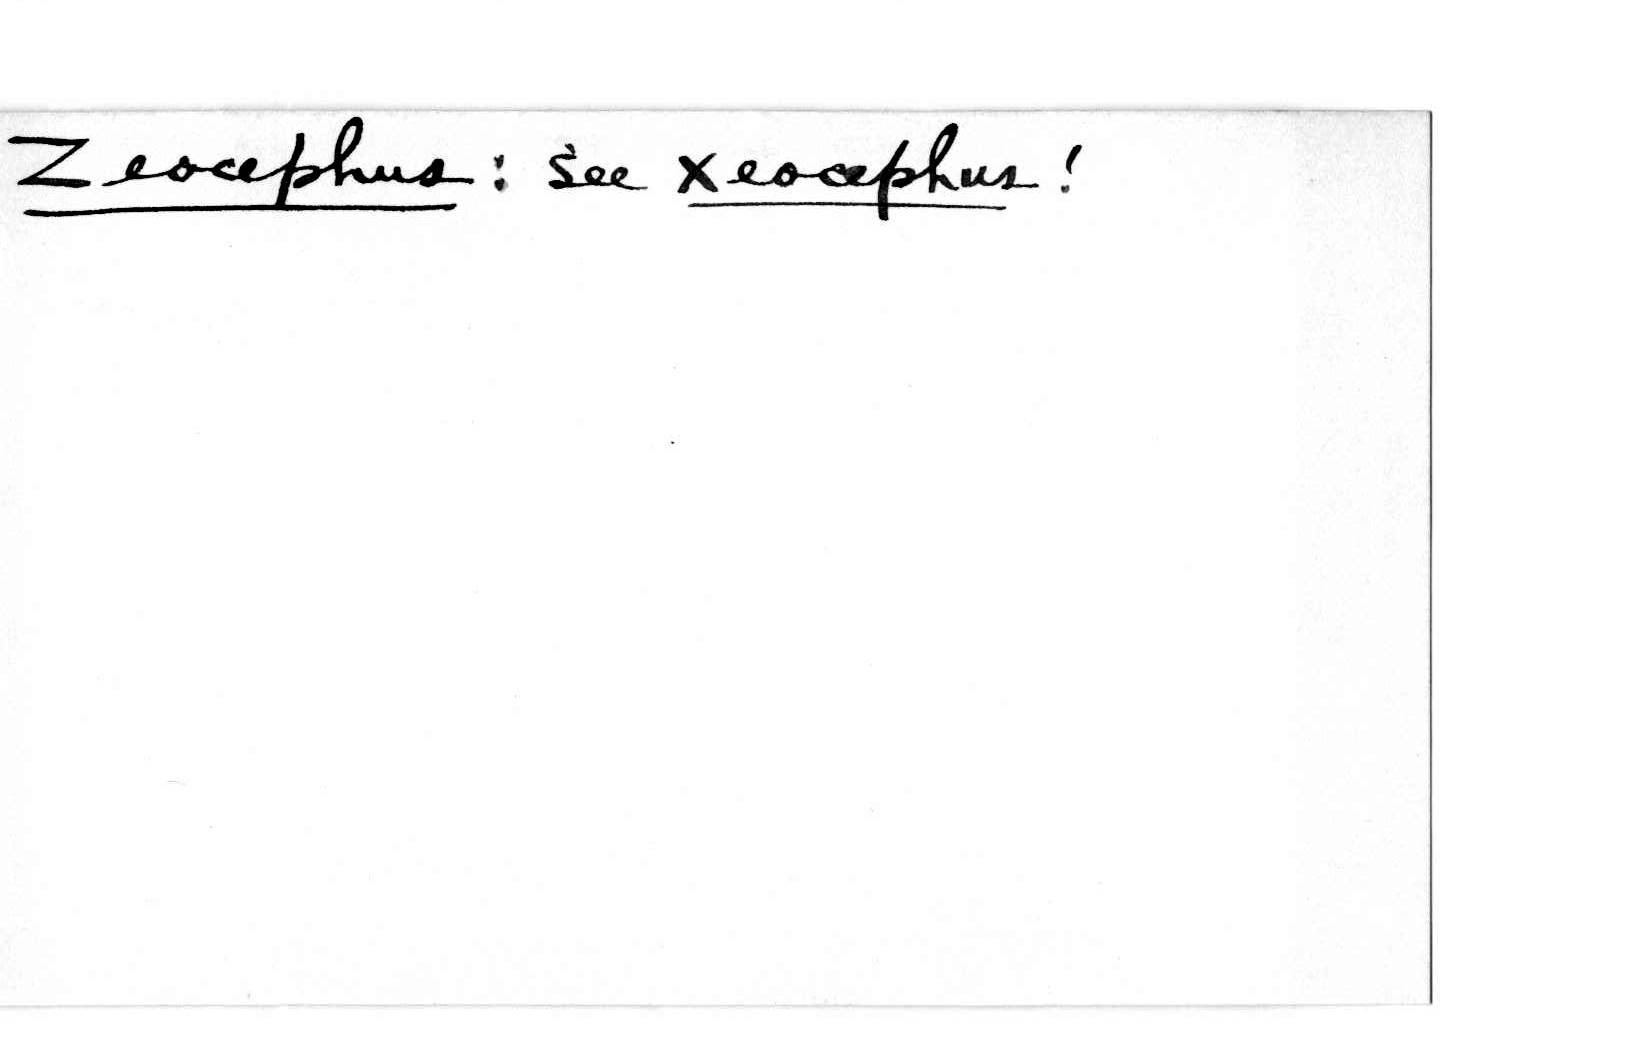 Zeocephus: see Xeocephus!